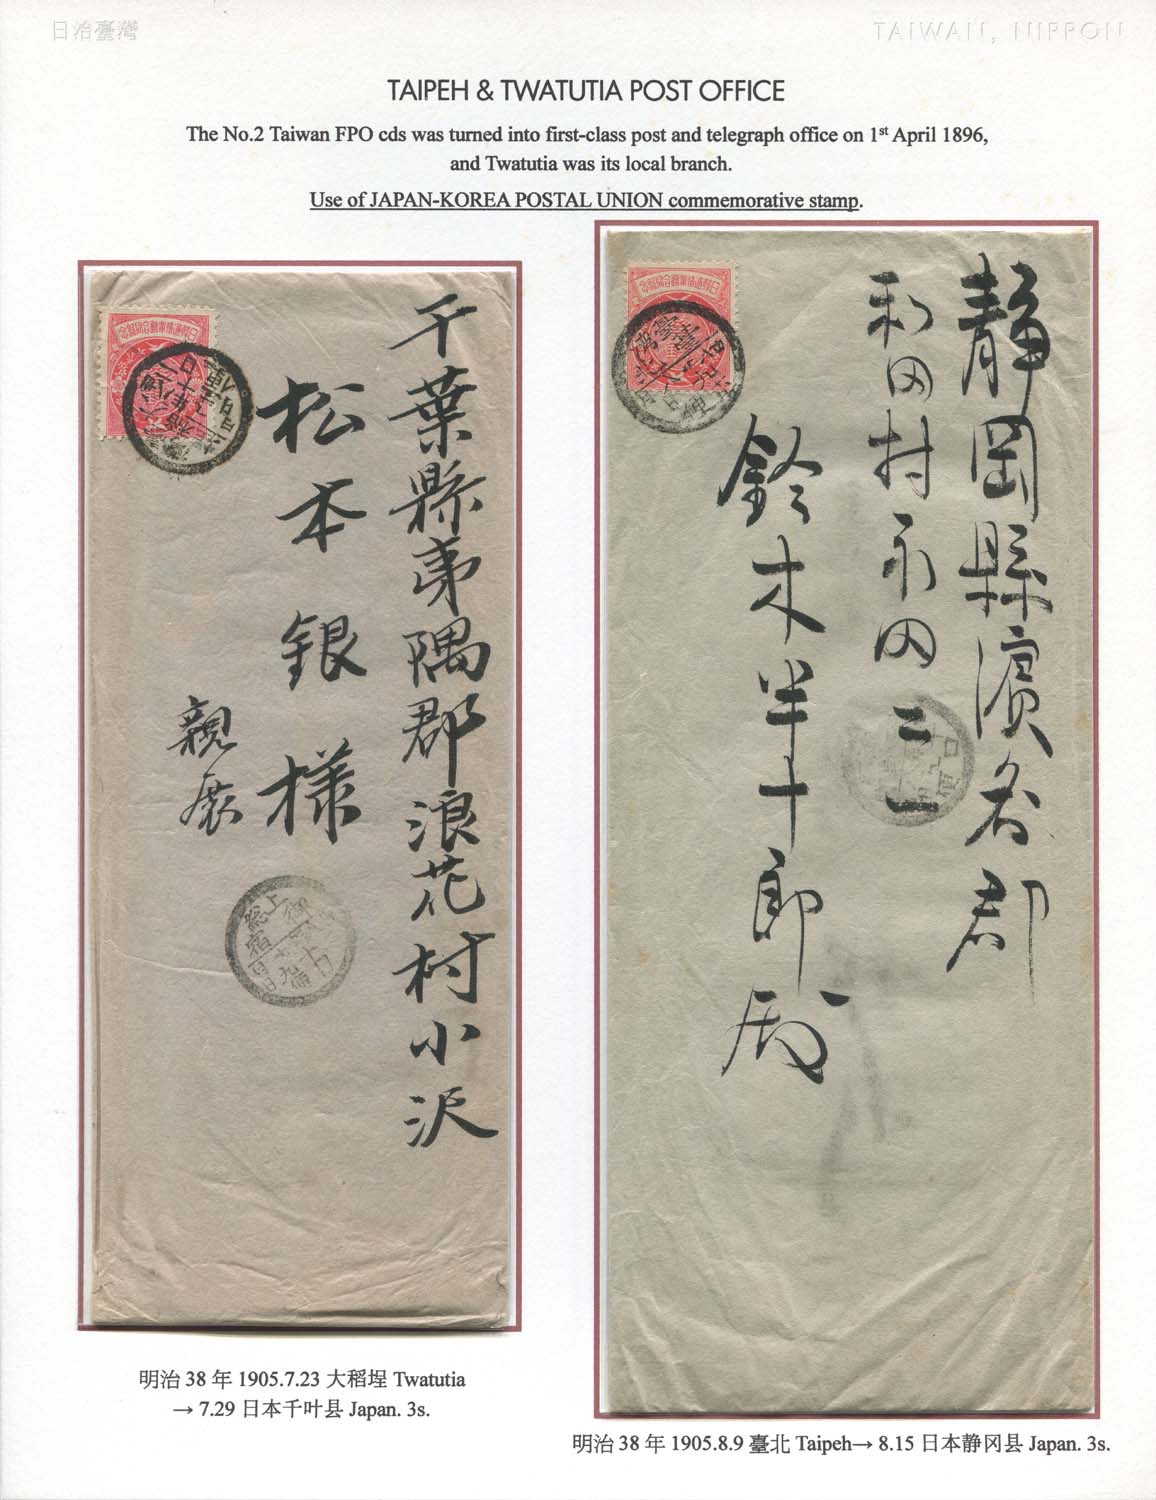 日治臺灣
TAIWAN, NIPPON
TAIPEH & TWATUTIA POST OFFICE
The No.2 Taiwan FPO cds was turned into first-class post and telegraph office on 1st April 1896,
and Twatutia was its local branch.
Use of JAPAN-KOREA POSTAL UNION commemorative stamp.
千葉縣夷隅郡浪花村小沢
松本銀様
親展
上総
御宿
靜岡縣濱名郡
和田村永田二一
鈴木半十郎殿
明治 38 年 1905.7.23 大稻埕 Twatutia
→ 7.29 日本千叶县 Japan. 3s.
明治 38 年 1905.8.9 臺北 Taipeh→ 8.15 日本静冈县 Japan. 3s.